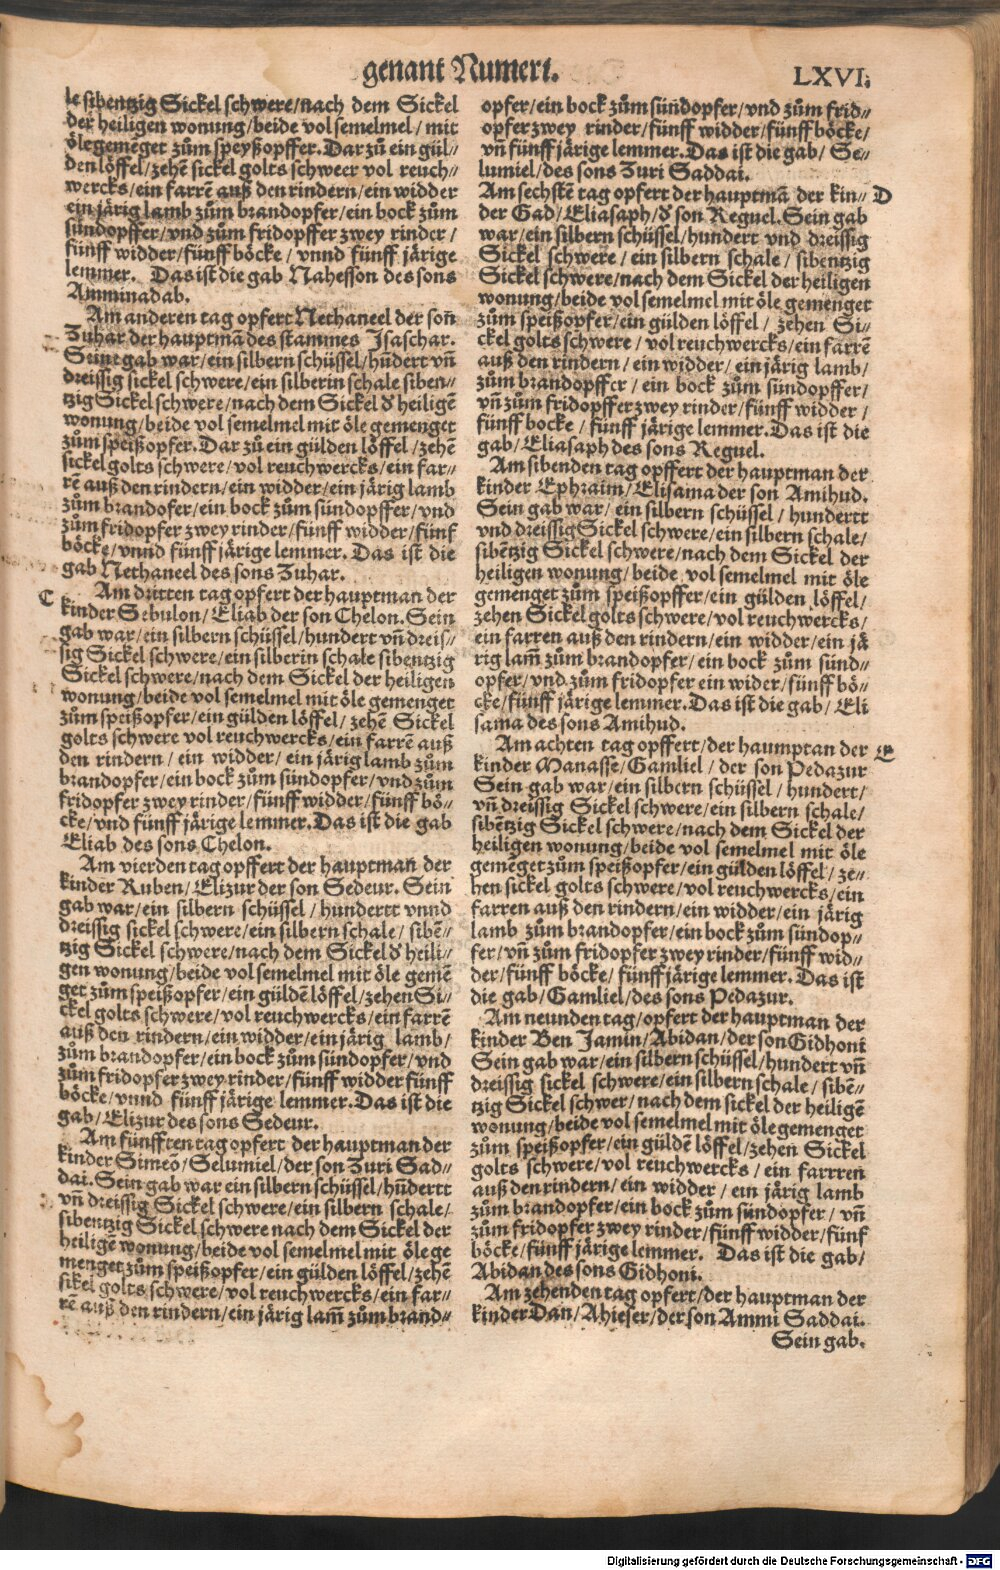 genant Numeri.
LXVI.
le sibentzig Sickel schwere/nach dem Sickel
der heiligen wonung/beide vol semelmel/ mit
öle gemẽget zům speyßopffer. Dar zů ein gül-
den löffel/zehẽ sickel golts schweer vol reuch-
wercks/ein farrẽ auß den rindern/ein widder
ein järig lamb zům brandopfer/ein bock zům
sündopffer/vnd zům fridopffer zwey rinder/
fünff widder/fünff böcke/ vnnd fünff järige
lemmer. Das ist die gab Nahesson des sons
Amminadab.
Am anderen tag opfert Nethaneel der soñ
Zuhar der hauptmã des stammes Isaschar.
Seine gab war/ein silbern schüssel/hũdert vñ
dreissig sickel schwere/ein silberin schale siben-
tzig Sickel schwere/nach dem Sickel ð heiligẽ
wonung/beide vol semelmel mit öle gemenget
zům speißopfer. Dar zů ein gülden löffel/zehẽ
sickel golts schwere/vol reuchwercks/ein far-
rẽ auß den rindern/ein widder/ein järig lamb
zům brandofer/ein bock zům sündopffer/vnd
zům fridopfer zwey rinder/fünff widder/fünf
böcke/vnnd fünff järige lemmer. Das ist die
gab Nethaneel des sons Zuhar.
C
Am dritten tag opfert der hauptman der
kinder Sebulon/Eliab der son Chelon. Sein
gab war/ein silbern schüssel/hundert vñ dreis-
sig Sickel schwere/ein silberin schale sibentzig
Sickel schwere/nach dem Sickel der heiligen
wonung/beide vol semelmel mit öle gemenget
zům speißopfer/ein gülden löffel/zehẽ Sickel
golts schwere vol reuchwercks/ein farrẽ auß
den rindern/ein widder/ein järig lamb zům
brandopfer/ein bock zům sündopfer/vnd zům
fridopfer zwey rinder/fünff widder/fünff bö-
cke/vnd fünff järige lemmer. Das ist die gab
Eliab des sons Chelon.
Am vierden tag opffert der hauptman der
kinder Ruben/Elizur der son Sedeur. Sein
gab war/ein silbern schüssel/hundertt vnnd
dreissig sickel schwere/ein silbern schale/sibẽ-
tzig Sickel schwere/nach dem Sickel ð heili-
gen wonung/beide vol semelmel mit öle gemẽ
get zům speißopfer/ein güldẽ löffel/zehen Si-
ckel golts schwere/vol reuchwercks/ein farrẽ
auß den rindern/ein widder/ein järig lamb/
zům brandopfer/ein bock zům sündopfer/vnd
zům fridopfer zwey rinder/fünff widder fünff
böcke/vnnd fünff järige lemmer. Das ist die
gab/Elizur des sons Sedeur.
Am fünfften tag opfert der hauptman der
kinder Simeõ/Selumiel/der son Zuri Sad-
dai. Sein gab war ein silbern schüssel/hũdertt
vñ dreissig Sickel schwere/ein silbern schale/
sibentzig Sickel schwere nach dem Sickel der
heiligẽ wonung/beide vol semelmel mit öle ge
menget zům speißopfer/ein gülden löffel/zehẽ
sikel golts schwere/vol reuchwercks/ein far-
rẽ auß den rindern/ein järig lam̃ zům brand-
opfer/ein bock zům sündopfer/vnd zům frid-
opfer zwey rinder/fünff widder/fünff böcke/
vñ fünff järige lemmer. Das ist die gab/ Se-
lumiel/des sons Zuri Saddai.
Am sechstẽ tag opfert der hauptmã der kin-
D
der Gad/Eliasaph/ð son Reguel. Sein gab
war/ein silbern schüssel/hundert vnd dreissig
Sickel schwere/ein silbern schale/sibentzig
Sickel schwere/nach dem Sickel der heiligen
wonung/beide vol semelmel mit öle gemenget
zům speißopfer/ein gülden löffel/ zehen Si-
ckel golts schwere/vol reuchwercks/ein farrẽ
auß den rindern/ein widder/ein järig lamb/
zům brandopffer/ein bock zům sündopffer/
vñ zům fridopffer zwey rinder/fünff widder/
fünff bocke/fünff järige lemmer. Das ist die
gab/Eliasaph des sons Reguel.
Am sibenden tag opffert der hauptman der
kinder Ephraim/Elisama der son Amihud.
Sein gab war/ein silbern schüssel/hundertt
vnd dreissig Sickel schwere/ein silbern schale/
sibẽtzig Sickel schwere/nach dem Sickel der
heiligen wonung/beide vol semelmel mit öle
gemenget zům speißopffer/ein gülden löffel/
zehen Sickel golts schwere/vol reuchwercks/
ein farren auß den rindern/ein widder/ein jä
rig lam̃ zům brandopfer/ein bock zům sünd-
opfer/vnd zům fridopfer ein wider/fünff bö-
cke/fünff järige lemmer. Das ist die gab/ Eli
sama des sons Amihud.
Am achten tag opffert/der haumptan der
E
kinder Manasse/Gamliel/der son Pedazur
Sein gab war/ein silbern schüssel/hundert/
vñ dreissig Sickel schwere/ein silbern schale/
sibẽtzig Sickel schwere/nach dem Sickel der
heiligen wonung/beide vol semelmel mit öle
gemẽget zům speißopfer/ein gülden löffel/ze-
hen sickel golts schwere/vol reuchwercks/ein
farren auß den rindern/ein widder/ein järig
lamb zům brandopfer/ein bock zům sündop-
fer/vñ zům fridopfer zwey rinder/fünff wid-
der/fünff böcke/fünff järige lemmer. Das ist
die gab/Gamliel/des sons Pedazur.
Am neunden tag/opfert der hauptman der
kinder Ben Jamin/Abidan/der son Gidhoni
Sein gab war/ein silbern schüssel/hundert vñ
dreissig sickel schwere/ein silbern schale/sibẽ-
tzig Sickel schwer/nach dem sickel der heiligẽ
wonung/beide vol semelmel mit öle gemenget
zům speißopfer/ein güldẽ löffel/zehen Sickel
golts schwere/vol reuchwercks/ein farrren
auß den rindern/ein widder/ein järig lamb
zům brandopfer/ein bock zům sündopfer/vñ
zům fridopfer zwey rinder/fünff widder/fünf
böcke/fünff järige lemmer. Das ist die gab/
Abidan des sons Gidhoni.
Am zehenden tag opfert/der hauptman der
kinder Dan/Ahieser/der son Ammi Saddai.
Sein gab.
Digitalisierung gefördert durch die Deutsche Forschungsgemeinschaft - DFG